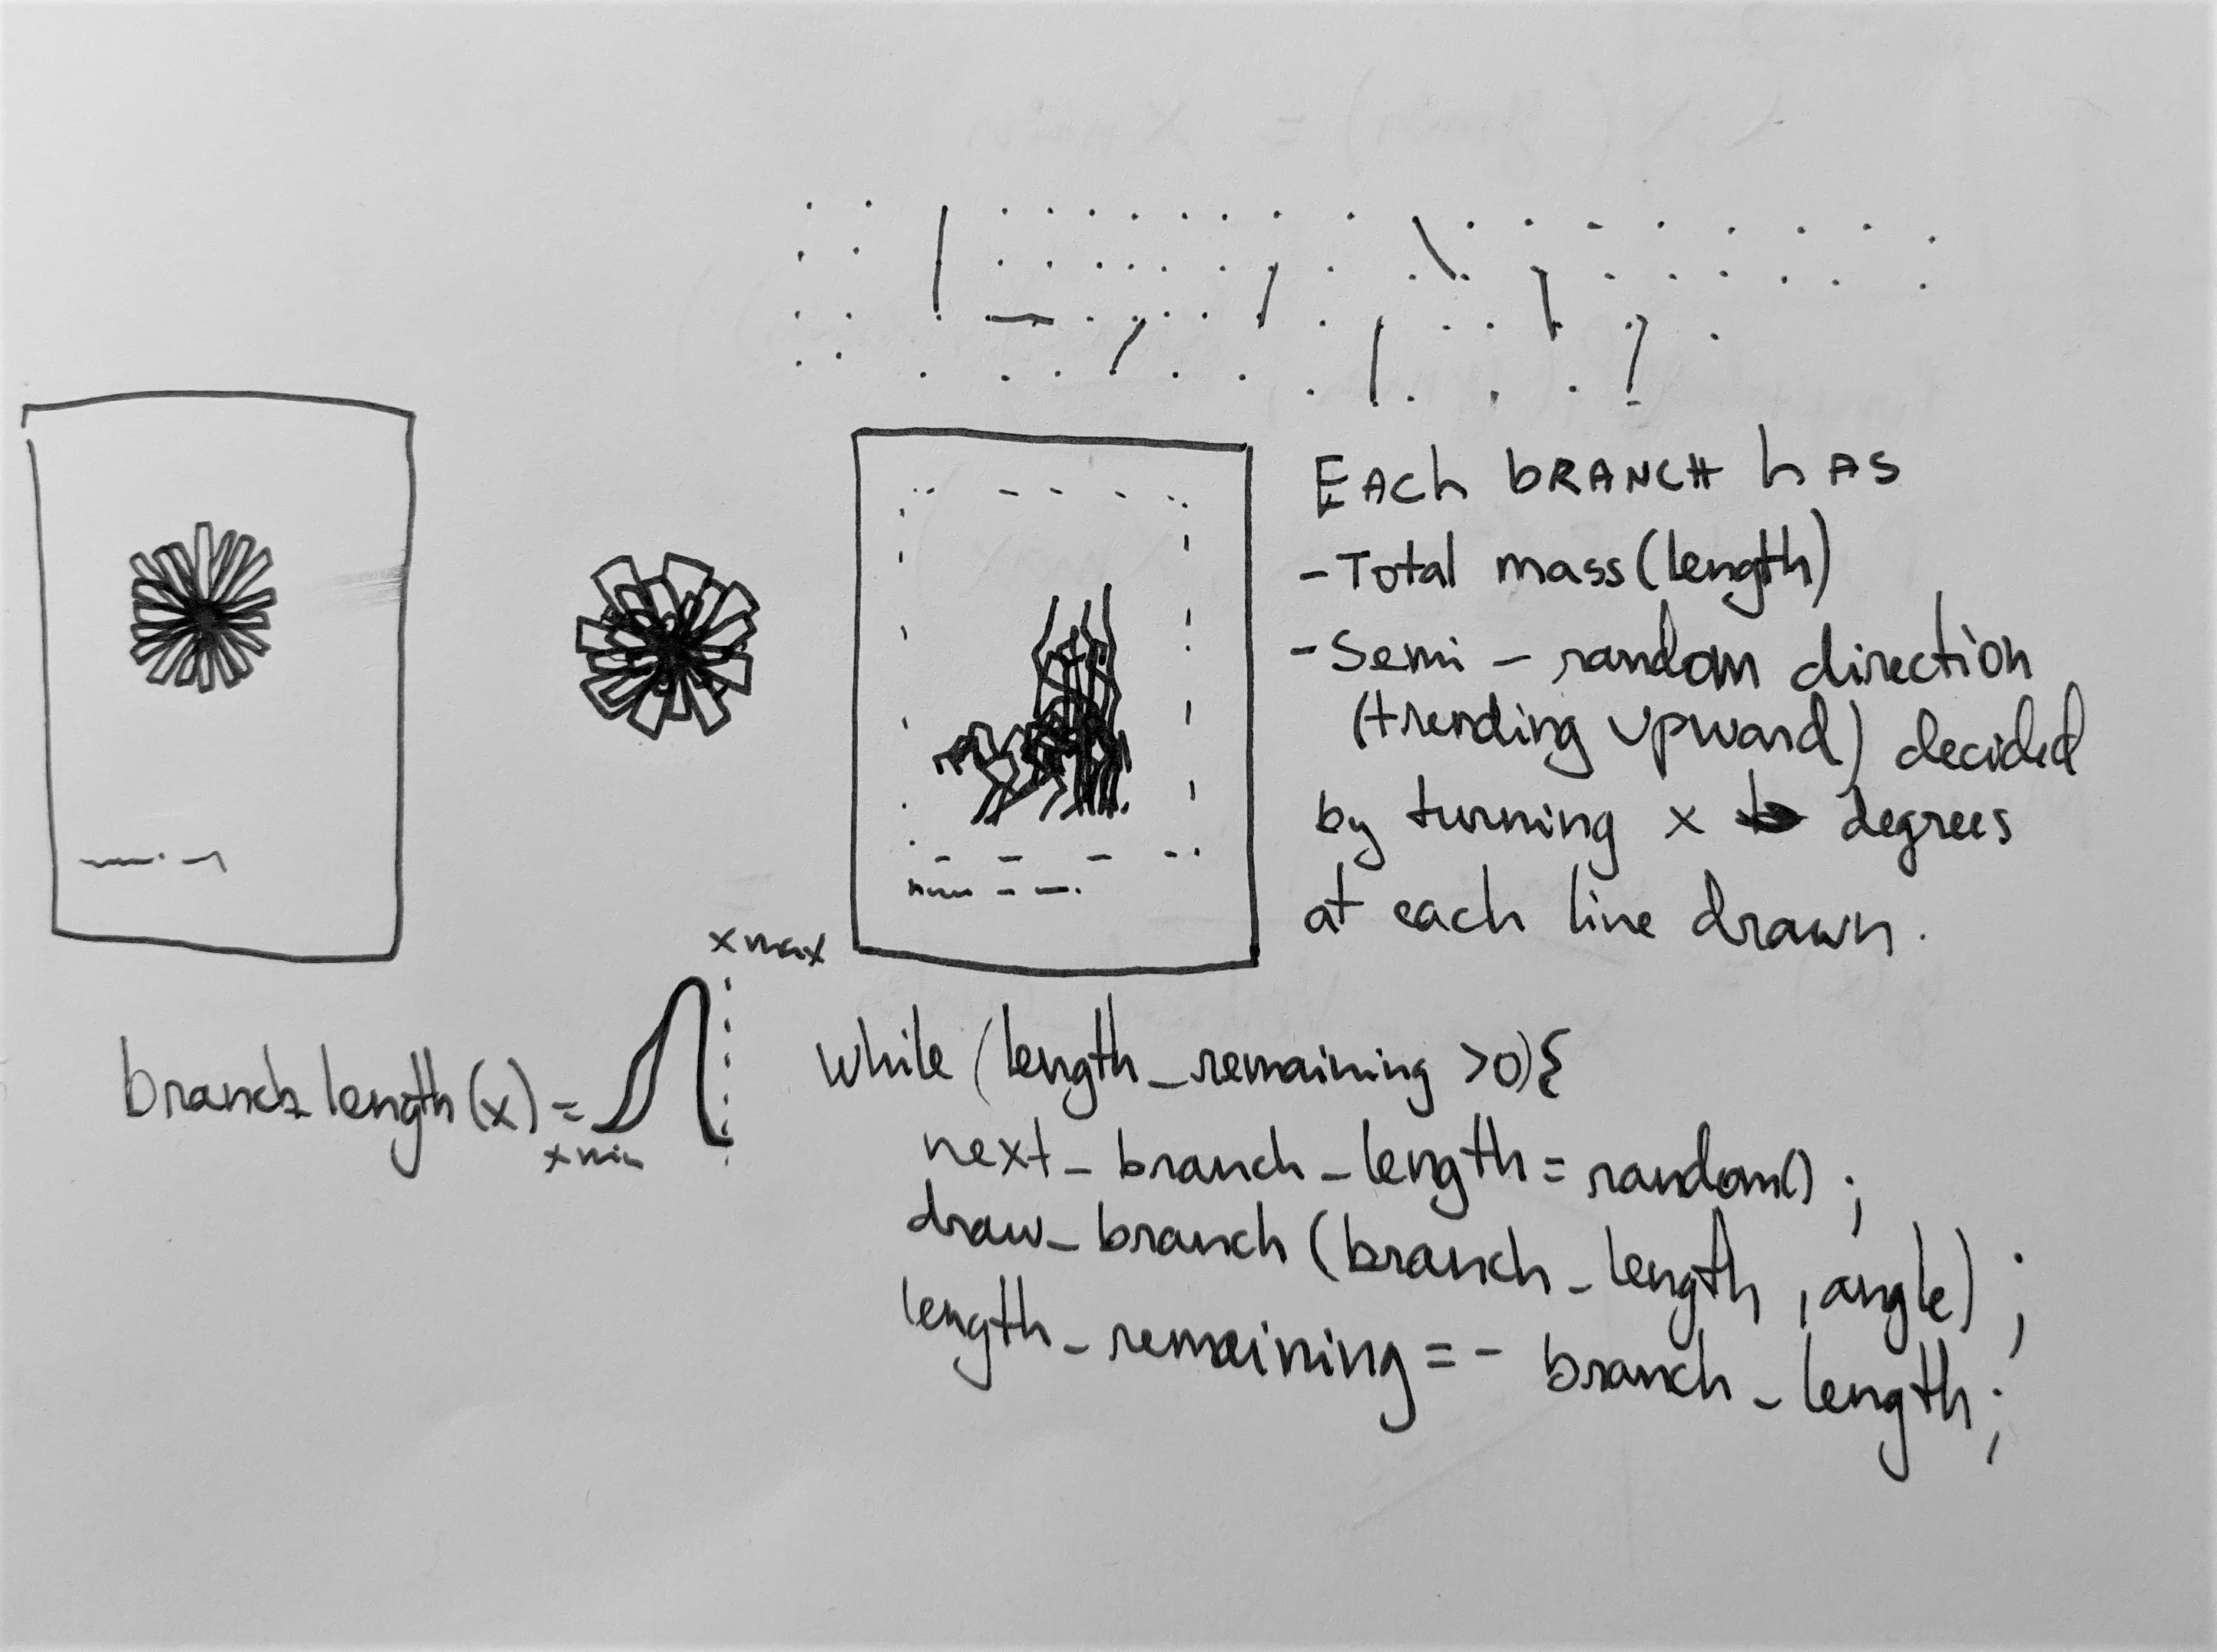 EACh bRANCH hAS
- Total mass (length)
- Semi - random direction
(trending upward) decided
by turning x degrees
at each line drawn.
x max
branch length (x) =
x min
while (length_remaining >0){
next_branch_length = random();
draw_branch (branch_length, angle);
length_remaining = - branch_length;